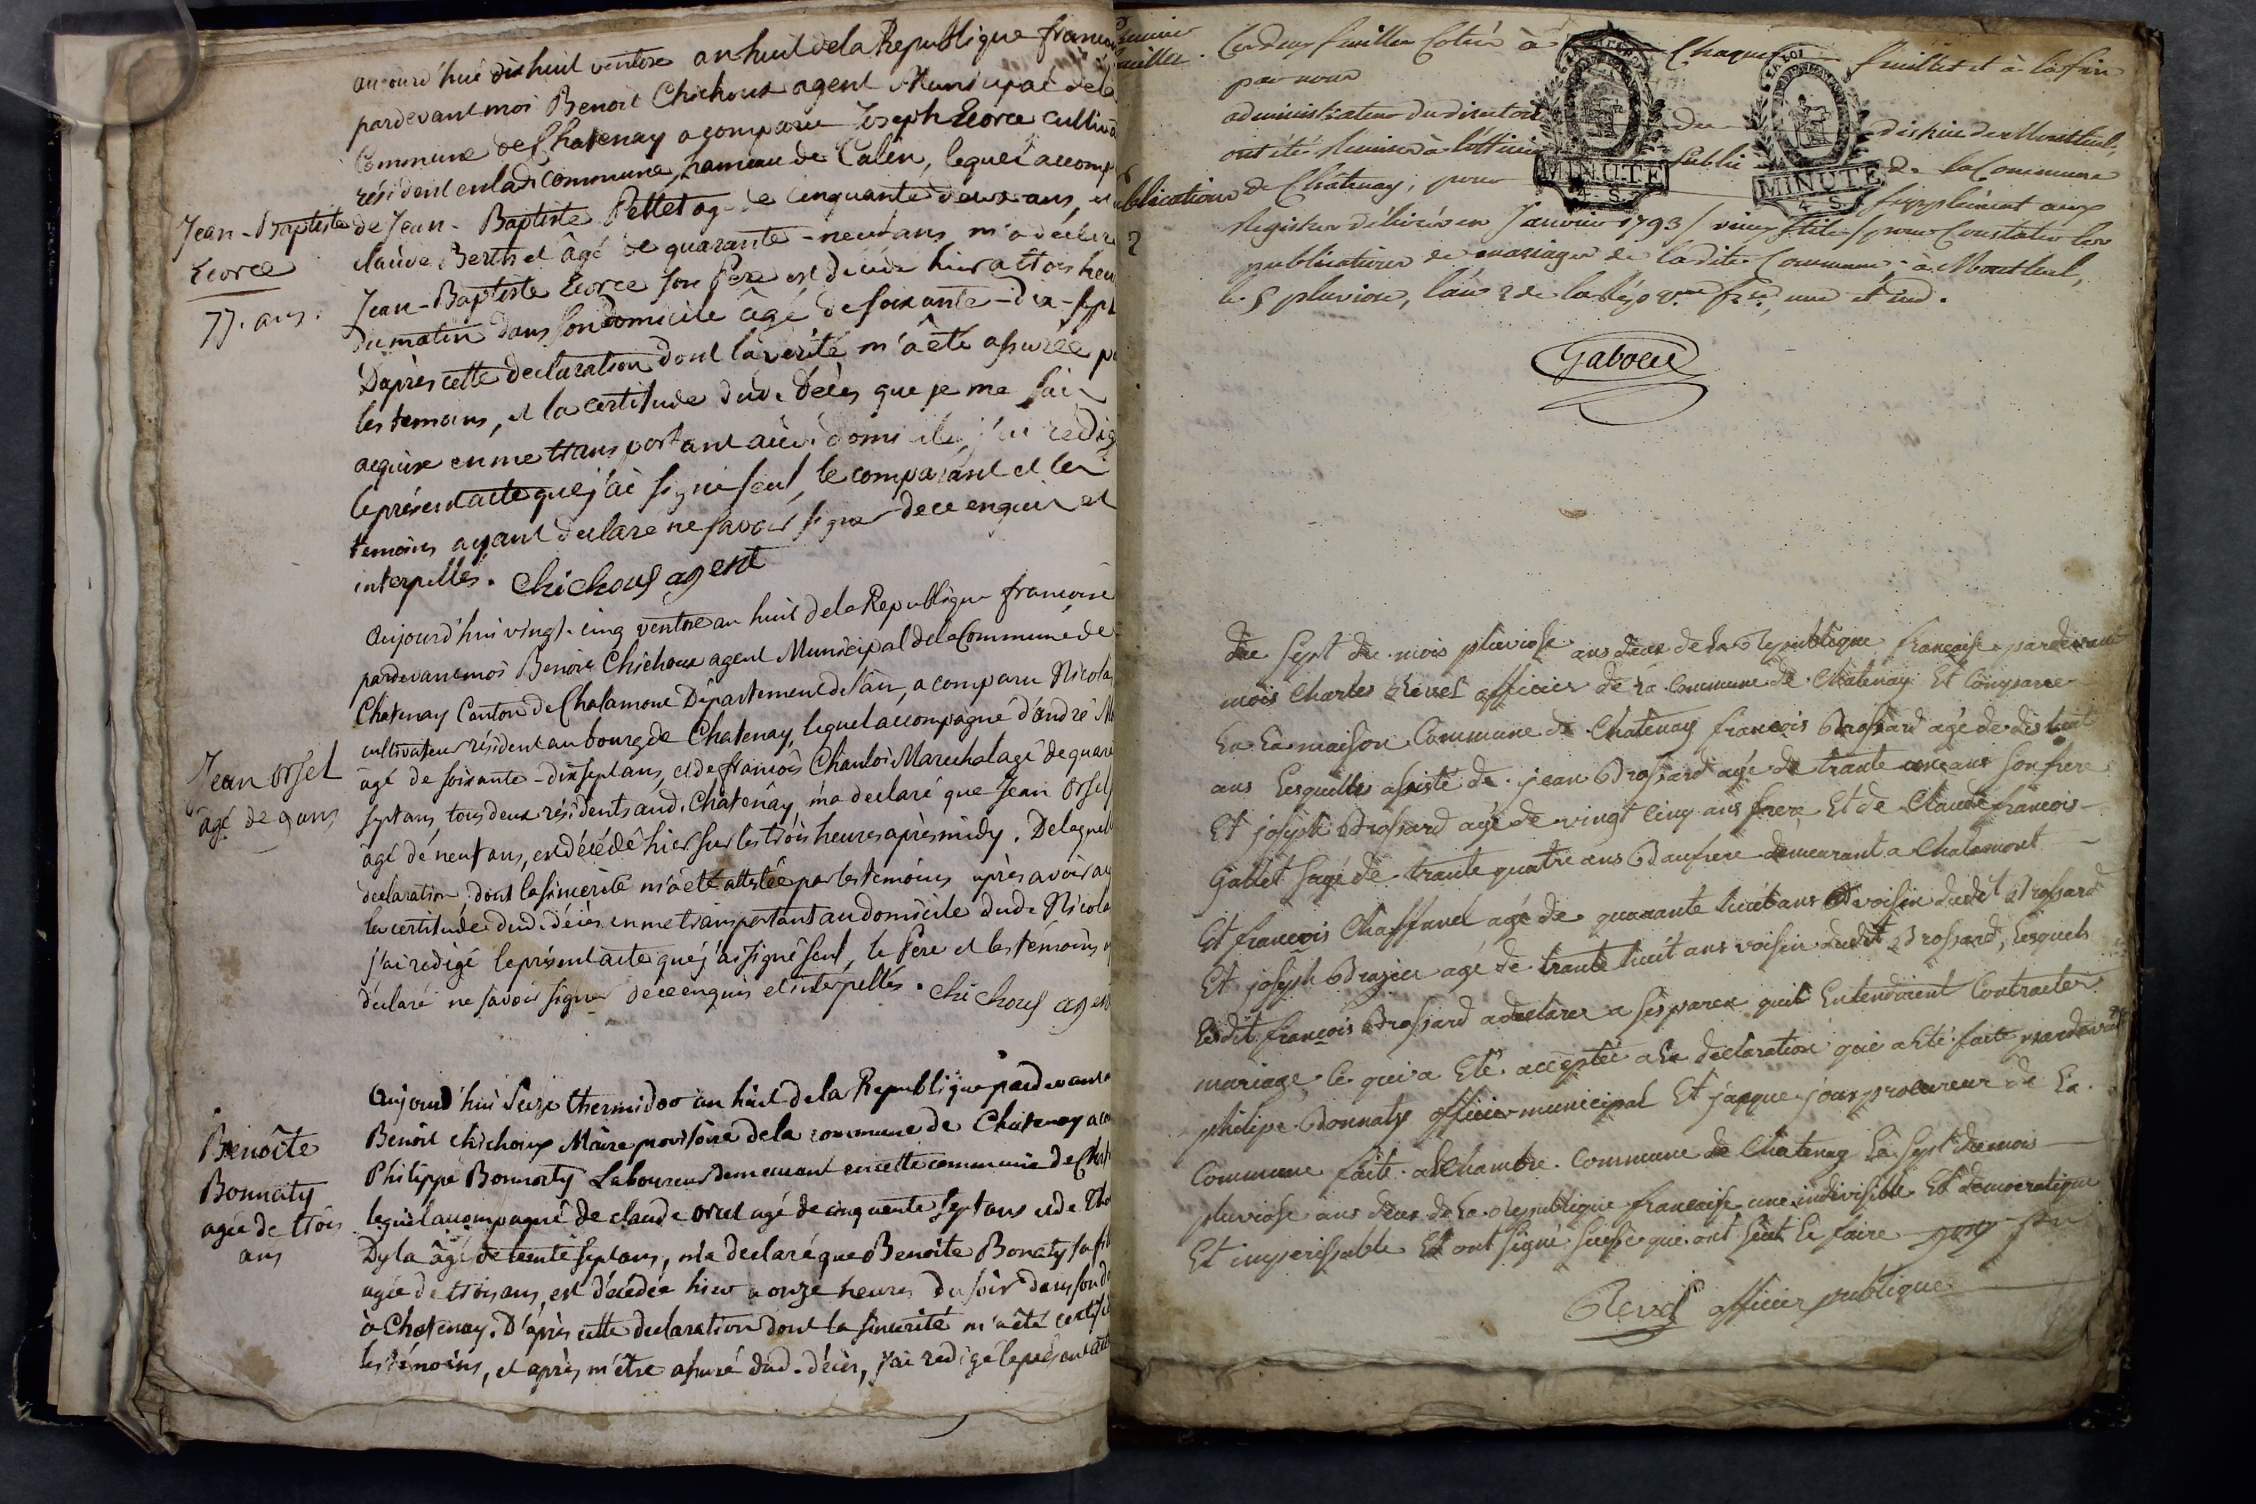 aujourd'hui dixhuit ventose an huit de la Republique francoi
pardevant moi Benoit Chichoux agent Municipal de la
Commune de Chatenay a comparu Joseph Ecorce cultiva
résident en lad. commune, hameau de Calen, lequel accomp
Jean-Baptiste
Ecorce
77. ans.
de Jean-Baptiste Pelletag de cinquante deux ans, et
claude Berthet âgé de quarante-neuf ans m'a declaré
Jean-Baptiste Ecorce son Pere est decedé hier a trois heu
du matin dans son domicile âgé de soixante-dix-sept
D'après cette declaration dont la verité m'a été assurée p
les temoins, et la certitude dud. decès que je me suis
acquise en me transportant aud. domicile, j'ai redig
le présent acte que j'ai signé seul, le comparant et les
temoins ayant declaré ne savoir signer de ce enquis et
interpellés. Chichoux agent
Aujourd'hui vingt-cinq ventose an huit de la Republique francoise
pardevant moi Benoit Chichoux agent Municipal de la Commune de
Chatenay Canton de Chalamont Département de l'ain, a comparu Nicola
cultivateur résident au bourg de Chatenay, lequel accompagné d'andré M
Jean Orsel
âgé de 9 ans
âgé de soixante-dix sept ans, et de francois Chanloi Marechal agé de quara
sept ans, tous deux résidents aud. Chatenay, m'a declaré que Jean Orsel
âgé de neuf ans, est décédé hier sur les trois heures après midy. De laquel
declaration, dont la sincerité m'a été attestée par les temoins après avoir ac
la certitude dud. décès en me transportant au domicile dud. Nicola
j'ai redigé le présent acte que j'ai signé seul, le Pere et les témoins
déclaré ne savoir signer de ce enquis et interpellés. Chichoux agent
Aujourd'hui Seize thermidor an huit de la Republique pardevant
Benoîte
Bonnaty
agée de trois
ans
Benoit chichoux Maire provisoire de la commune de Chatenay a co
Philippe Bonnaty Laboureur demeurant en cette commune de Chat
lequel accompagné de claude orcel agé de cinquante sept ans et de Tho
Dyla âgé de trente sept ans, m'a declaré que Benoite Bonaty sa fi
agée de trois ans, est décédée hier a onze heures du soir dans son do
à Chatenay. D'après cette declaration dont la sincerité m'a été certifié
les témoins, et après m'être assuré dud. décès, j'ai redigé le présent acte
Premier
feuillet.
Ces deux feuilles Cotées à Chaque feuillet et à la fin
par nous
administrateur du directoire du district de Montluel,
ont été remises à l'officier public de la Commune
LA LOI
MINUTE
4 S.
LA LOI
MINUTE
4 S.
publications
2
de Châtenay, pour supplément aux
Registres délivrés en Janvier 1793 / vieux stile / pour Constater les
publications de mariages de ladite Commune. à Montluel,
le 5 pluviose, l'an 2 de la Rép. frse, une et ind.
Gaboud
Du Sept du mois pluviose ans deux de la Republique francaise pardevant
mois Charles Revel officier de la Commune de Châtenay Et Comparu
En la maison Commune de Chatenay francois Brossard agé de dishuit
ans Lesquelles assisté de jean Brossard agé de trante ans son frere
Et joseph Brossard agé de vingt cinq ans frere Et de Claude francois
Gallet agé de trante quatre ans Baufrere demeurant a Chalamont
Et francois Chaffanel agé de quarante huit ans voisin dudit Brossard
Et joseph Brazier agé de trante huit ans voisin dudit Brossard, Lesquels
Ledit francois Brossard a declarer a ses parex quil Entendoient Contracter
mariage, ce qui a Eté acceptée a La declaration qui a Eté faite pardevant
philipe Bonnaty officier municipal Et jacque jour procureur de La
Commune faite a La Chambre Commune de Chatenay Le Sept du mois
pluviose ans deux de La Republique francaise une indivisible Et democratique
Et imperissable Et ont Signé Seuls que ont Seut Le faire
Revel officier publique